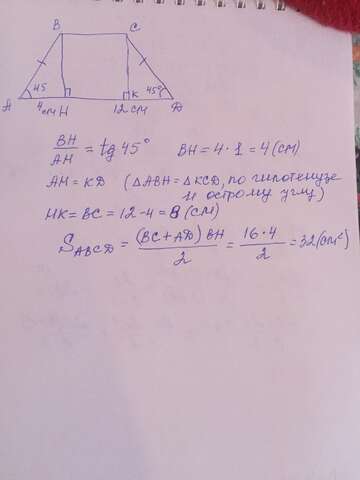 B C
45 45°
A 4см H K 12 см D
BH/AH = tg 45° BH = 4 · 1 = 4 (см)
AH = KD (△ABH = △KCD, по гипотенузе
и острому углу)
HK = BC = 12 - 4 = 8 (см)
S ABCD = (BC + AD) BH / 2 = 16 · 4 / 2 = 32 (см²)